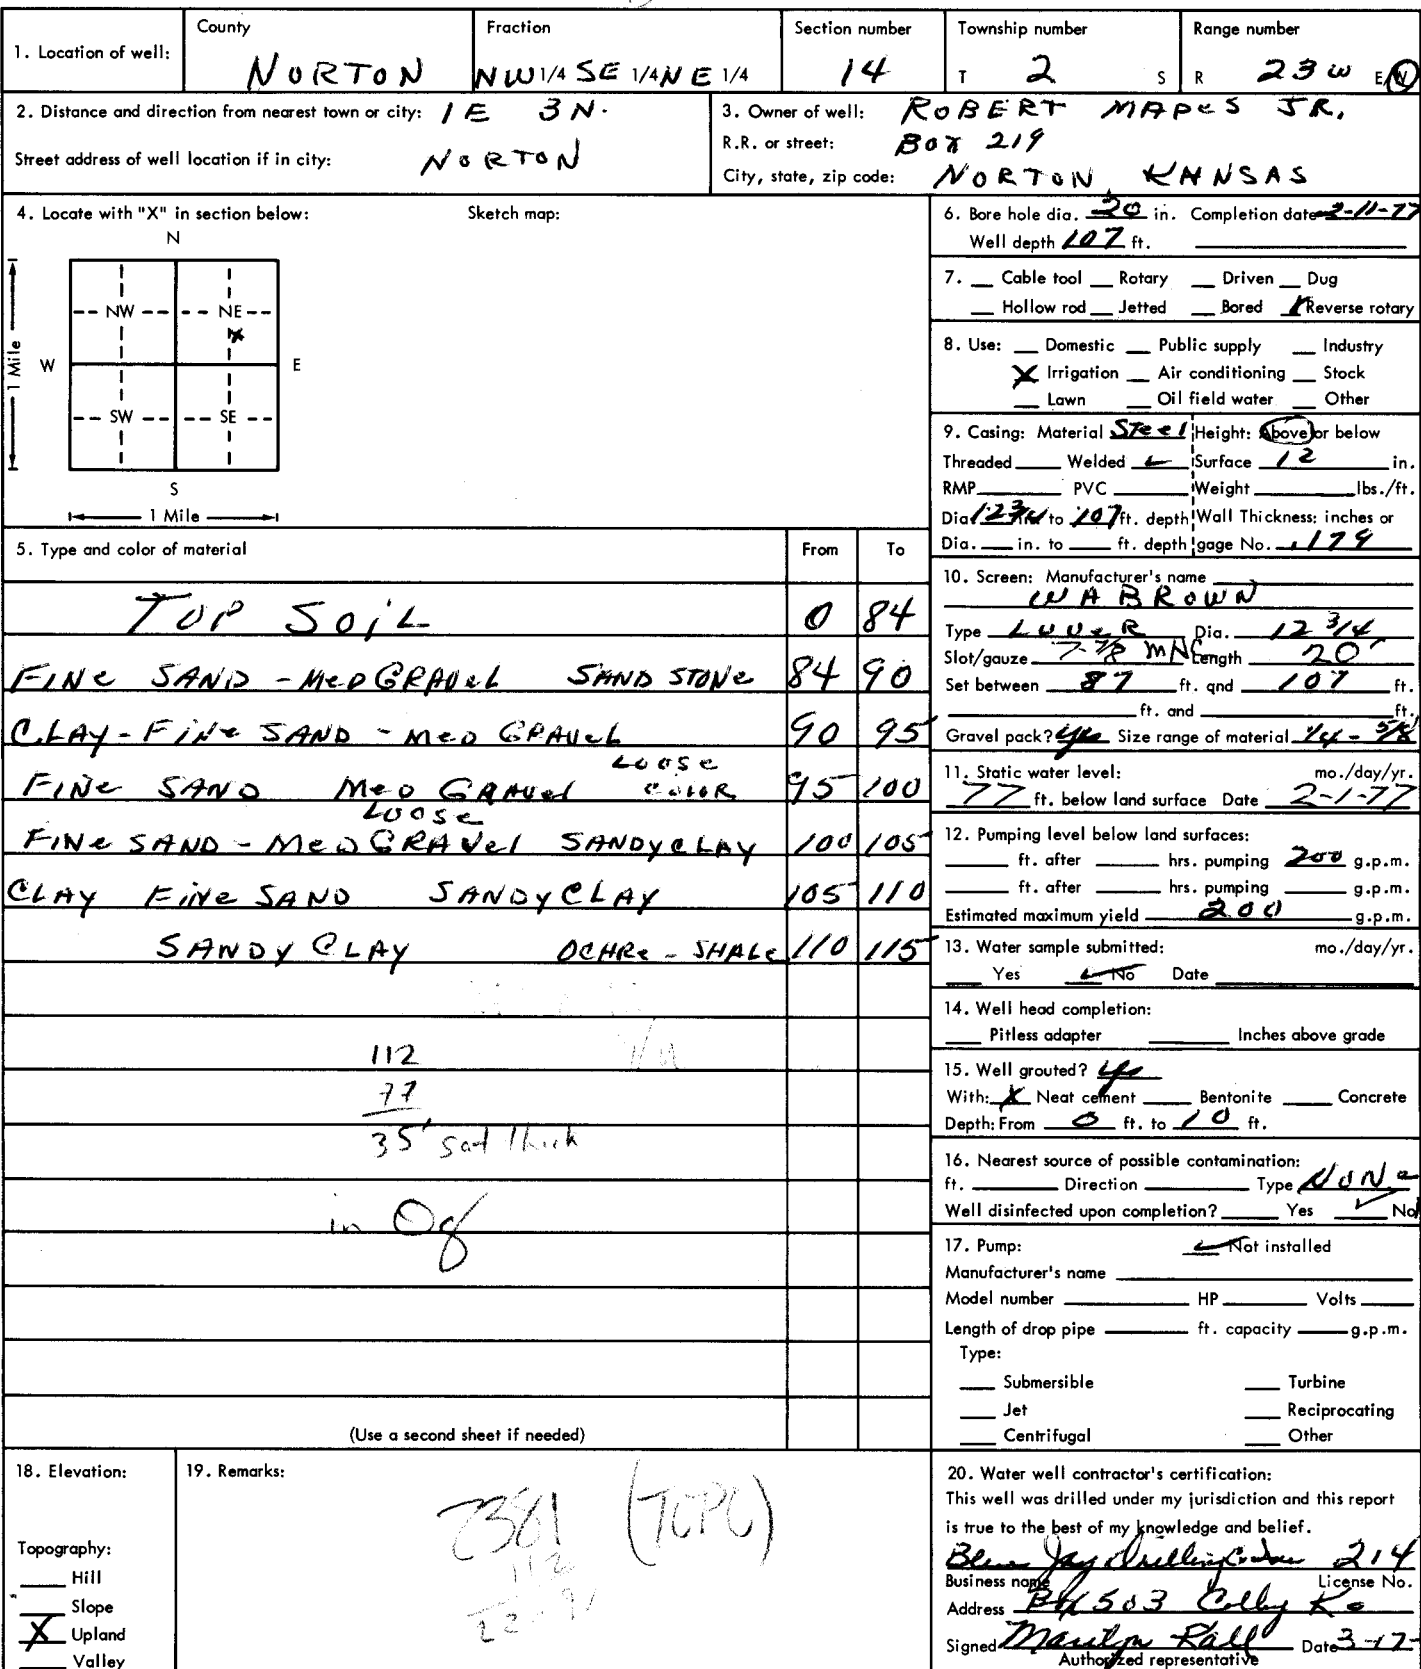 County Fraction Section number Township number Range number
1. Location of well: NORTON NW 1/4 SE 1/4 NE 1/4 14 T 2 S R 23 W E/W
2. Distance and direction from nearest town or city: 1 E 3 N.
Street address of well location if in city: NORTON
3. Owner of well: ROBERT MAPES JR.
R.R. or street: BOX 219
City, state, zip code: NORTON, KANSAS
4. Locate with "X" in section below: Sketch map:
N
NW NE
X
1 Mile W E
SW SE
S
1 Mile
5. Type and color of material From To
TOP SOIL 0 84
FINE SAND - MED GRAVEL SAND STONE 84 90
CLAY - FINE SAND - MED GRAVEL 90 95
FINE SAND MED GRAVEL LOOSE COLOR 95 100
LOOSE
FINE SAND - MED GRAVEL SANDY CLAY 100 105
CLAY FINE SAND SANDY CLAY 105 110
SANDY CLAY OCHRE - SHALE 110 115
112
77
35' sat thick
in Og
(Use a second sheet if needed)
6. Bore hole dia. 20 in. Completion date 2-11-77
Well depth 107 ft.
7. Cable tool Rotary Driven Dug
Hollow rod Jetted Bored Reverse rotary
8. Use: Domestic Public supply Industry
X Irrigation Air conditioning Stock
Lawn Oil field water Other
9. Casing: Material Steel Height: Above or below
Threaded Welded Surface 12 in.
RMP PVC Weight lbs./ft.
Dia. 12 3/4 in. to 107 ft. depth Wall Thickness: inches or
Dia. in. to ft. depth gage No. .179
10. Screen: Manufacturer's name
W A BROWN
Type LUVER Dia. 12 3/4
Slot/gauze 7-7/8 Length 20'
Set between 87 ft. and 107 ft.
ft. and ft.
Gravel pack? yes Size range of material 1/4 - 5/8
11. Static water level: mo./day/yr.
77 ft. below land surface Date 2-1-77
12. Pumping level below land surfaces:
ft. after hrs. pumping 200 g.p.m.
ft. after hrs. pumping g.p.m.
Estimated maximum yield 200 g.p.m.
13. Water sample submitted: mo./day/yr.
Yes No Date
14. Well head completion:
Pitless adapter Inches above grade
15. Well grouted? yes
With: X Neat cement Bentonite Concrete
Depth: From 0 ft. to 10 ft.
16. Nearest source of possible contamination:
ft. Direction Type NONE
Well disinfected upon completion? Yes No
17. Pump: Not installed
Manufacturer's name
Model number HP Volts
Length of drop pipe ft. capacity g.p.m.
Type:
Submersible Turbine
Jet Reciprocating
Centrifugal Other
18. Elevation:
Topography:
Hill
Slope
X Upland
Valley
19. Remarks:
(TOPO)
112
20. Water well contractor's certification:
This well was drilled under my jurisdiction and this report
is true to the best of my knowledge and belief.
Blue Jay Drilling 214
Business name License No.
Address Bx 503 Colby Ks
Signed Marilyn Rall Date 3-17-
Authorized representative